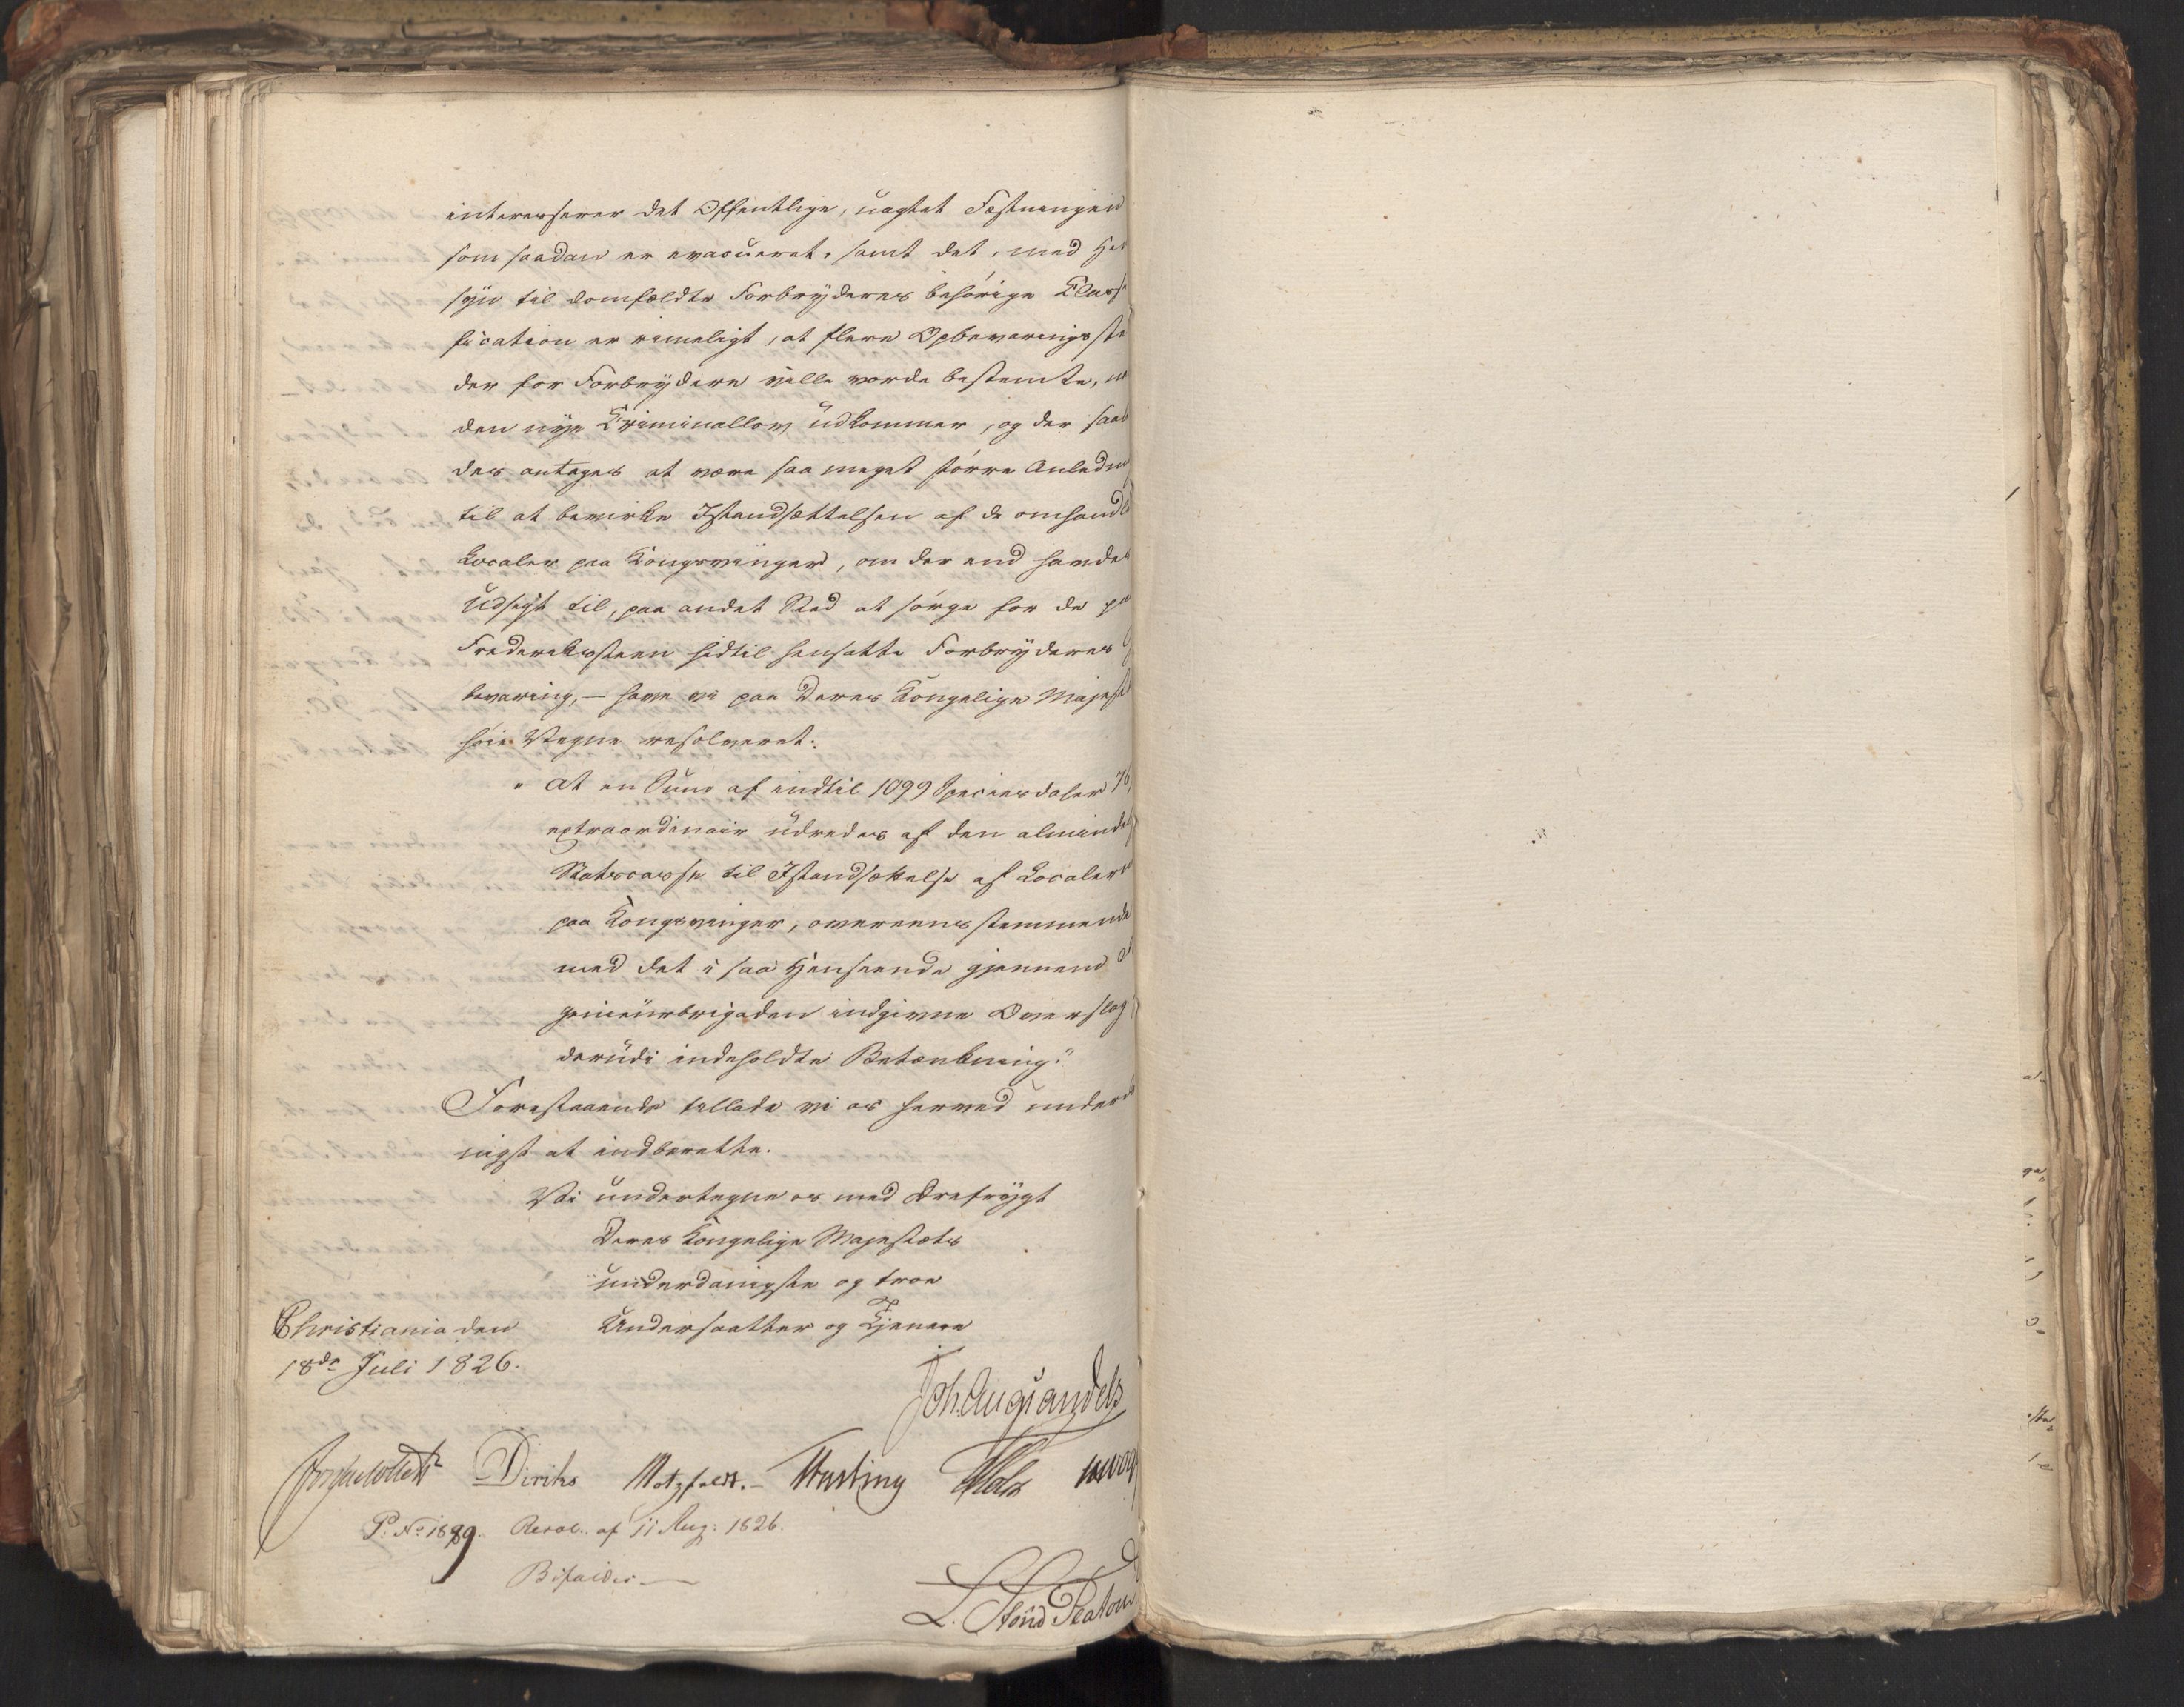 interesserer det Offentlige, uagtet Fæstningen
som saadan er evacueret, samt det, med Hen
syn til domfældte Forbryderes behørige Classi
fication er rimeligt, at flere Opbevaringsste
der for Forbrydere ville vorde bestemte, 
den nye Criminallov udkommer, og der saale
des antages at være saa meget større Anledn
til at bevirke Istandsættelsen af de omhandle
Localer paa Kongsvinger, om der end havdes
Udsigt til, paa andet Sted at sørge for de paa
Frederiksteen hidtil hensatte Forbryderes
bevaring, — have vi paa Deres Kongelige Majestæ
høie Vegne resolveret:
" at en Sum af indtil 1099 Speciesdaler 76
extraordinair udredes af den almindel
Statscasse til Istandsættelse af Localer
paa Kongsvinger, overeensstemmende
med det i saa Henseende gjennem
genieurbrigaden indgivne Overslag
derudi indeholdte Betænkning."
Forestaaende tillade vi os herved underda
nigst at indberette.
Vi undertegne os med Ærefrygt
Deres Kongelige Majestæts
underdanigste og troe
Christiania den Undersaatter og Tjenere
18de Juli 1826.
Joh. Aug. Sandels
Jonas Collett Diriks Motzfeldt. Fasting Holst
P: No 1889. Resol. af 11 Aug: 1826.
Bifaldes
L. Stoud Platou